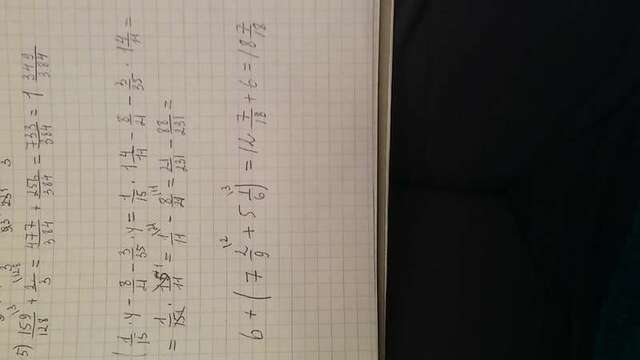 5) 159/128 + 2/3 = 477/384 + 256/384 = 733/384 = 1 349/384
(1/15 · y - 8/21 - 3/35 · y = 1/15 · 1 4/11 - 8/21 - 3/35 · 1 4/11 =
= 1/15 · 15/11 = 1/11 - 8/21 = 21/231 - 88/231 =
6 + (7 2/9 + 5 1/6) = 12 7/18 + 6 = 18 7/18